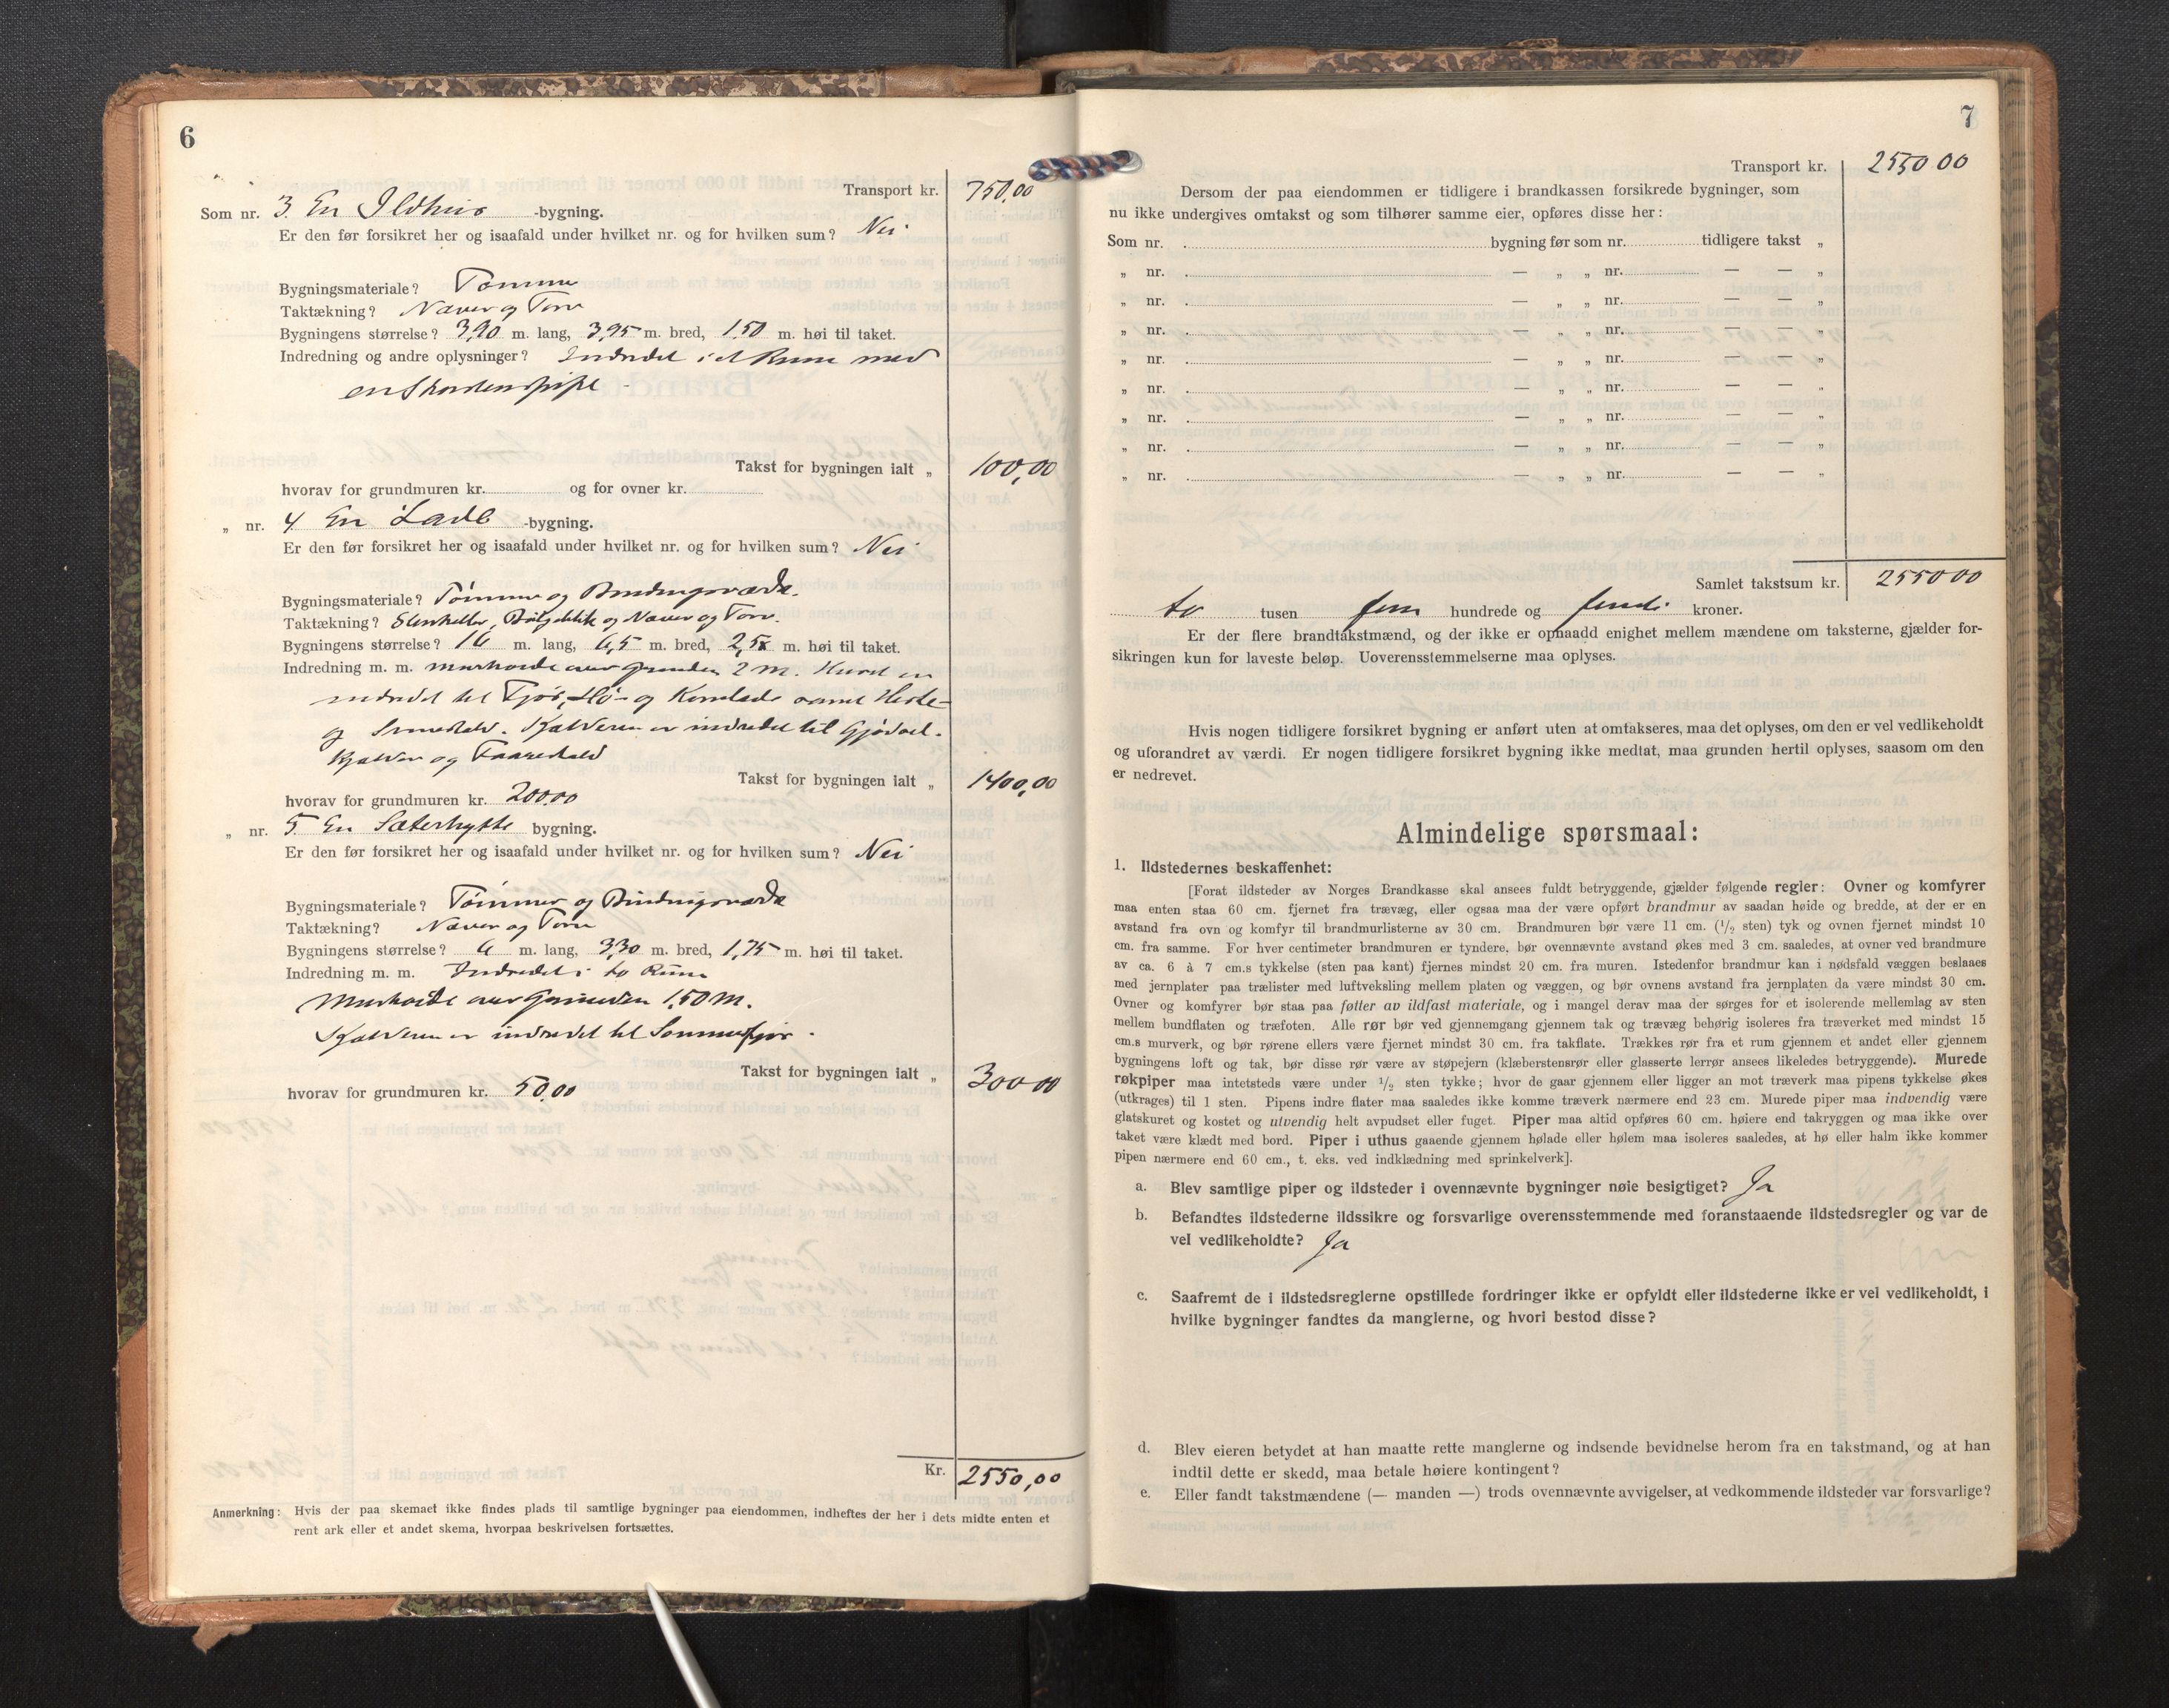 6
Transport kr. 750,00
Som nr. 3. En Ildhus -bygning.
Er den før forsikret her og isaafald under hvilket nr. og for hvilken sum? Nei
Bygningsmateriale? Tømmer
Taktækning? Næver og Torv
Bygningens størrelse? 3,90 m. lang, 3,95 m. bred, 1,50 m. høi til taket.
Indredning og andre oplysninger? Indredet i et Rum med
en Skorstenspipe -
Takst for bygningen ialt „ 100,00
hvorav for grundmuren kr. og for ovner kr.
„ nr. 4. En Lade -bygning.
Er den før forsikret her og isaafald under hvilket nr. og for hvilken sum? Nei
Bygningsmateriale? Tømmer og Bindingsværk.
Taktækning? Stenheller, Bølgeblik og Næver og Torv.
Bygningens størrelse? 16 m. lang, 6,5 m. bred, 2,5 m. høi til taket.
Indredning m. m. murhøide over Grunden 2 M. Huset er
indredet til Fjøs, Hø- og Kornlade samt Heste-
og Smuestald. Kjælderen er indredet til Gjødsel-
Kjælder og Faarestald
Takst for bygningen ialt „ 1400,00
hvorav for grundmuren kr. 200.00
„ nr. 5. En Sæterhytte bygning.
Er den før forsikret her og isaafald under hvilket nr. og for hvilken sum? Nei
Bygningsmateriale? Tømmer og Bindingsværk
Taktækning? Næver og Torv
Bygningens størrelse? 6 m. lang, 3,30 m. bred, 1,75 m. høi til taket.
Indredning m. m. Indredet i to Rum
Murhøide over Grunden 1,50 M.
Kjælderen er indredet til Sommerfjøs.
Takst for bygningen ialt „ 300 00
hvorav for grundmuren kr. 50.00
Kr. 2550,00
Anmerkning: Hvis der paa skemaet ikke findes plads til samtlige bygninger paa eiendommen, indheftes der her i dets midte enten et
rent ark eller et andet skema, hvorpaa beskrivelsen fortsættes.
7
Transport kr. 2550 00
Dersom der paa eiendommen er tidligere i brandkassen forsikrede bygninger, som
nu ikke undergives omtakst og som tilhører samme eier, opføres disse her:
Som nr. bygning før som nr. tidligere takst „
„ nr. — „ „ nr. — — „
„ nr. — „ „ nr. — — „
„ nr. — „ „ nr. — — „
„ nr. — „ „ nr. — — „
„ nr. — „ „ nr. — — „
„ nr. — „ „ nr. — — „
„ nr. — „ „ nr. — — „
„ nr. — „ „ nr. — — „
Samlet takstsum kr. 2550 00
to tusen fem hundrede og femti kroner.
Er der flere brandtakstmænd, og der ikke er opnaadd enighet mellem mændene om taksterne, gjælder for-
sikringen kun for laveste beløp. Uoverensstemmelserne maa oplyses.
Hvis nogen tidligere forsikret bygning er anført uten at omtakseres, maa det oplyses, om den er vel vedlikeholdt
og uforandret av værdi. Er nogen tidligere forsikret bygning ikke medtat, maa grunden hertil oplyses, saasom om den
er nedrevet.
Almindelige spørsmaal:
1. Ildstedernes beskaffenhet:
[Forat ildsteder av Norges Brandkasse skal ansees fuldt betryggende, gjælder følgende regler: Ovner og komfyrer
maa enten staa 60 cm. fjernet fra trævæg, eller ogsaa maa der være opført brandmur av saadan høide og bredde, at der er en
avstand fra ovn og komfyr til brandmurlisterne av 30 cm. Brandmuren bør være 11 cm. (1/2 sten) tyk og ovnen fjernet mindst 10
cm. fra samme. For hver centimeter brandmuren er tyndere, bør ovennævnte avstand økes med 3 cm. saaledes, at ovner ved brandmure
av ca. 6 à 7 cm.s tykkelse (sten paa kant) fjernes mindst 20 cm. fra muren. Istedenfor brandmur kan i nødsfald væggen beslaaes
med jernplater paa trælister med luftveksling mellem platen og væggen, og bør ovnens avstand fra jernplaten da være mindst 30 cm.
Ovner og komfyrer bør staa paa føtter av ildfast materiale, og i mangel derav maa der sørges for et isolerende mellemlag av sten
mellem bundflaten og træfoten. Alle rør bør ved gjennemgang gjennem tak og trævæg behørig isoleres fra træverket med mindst 15
cm.s murverk, og bør rørene ellers være fjernet mindst 30 cm. fra takflate. Trækkes rør fra et rum gjennem et andet eller gjennem
bygningens loft og tak, bør disse rør være av støpejern (klæberstensrør eller glasserte lerrør ansees likeledes betryggende). Murede
røkpiper maa intetsteds være under 1/2 sten tykke; hvor de gaar gjennem eller ligger an mot træverk maa pipens tykkelse økes
(utkrages) til 1 sten. Pipens indre flater maa saaledes ikke komme træverk nærmere end 23 cm. Murede piper maa indvendig være
glatskuret og kostet og utvendig helt avpudset eller fuget. Piper maa altid opføres 60 cm. høiere end takryggen og maa ikke over
taket være klædt med bord. Piper i uthus gaaende gjennem hølade eller hølem maa isoleres saaledes, at hø eller halm ikke kommer
pipen nærmere end 60 cm., t. eks. ved indklædning med sprinkelverk].
a. Blev samtlige piper og ildsteder i ovennævnte bygninger nøie besigtiget? Ja
b. Befandtes ildstederne ildssikre og forsvarlige overensstemmende med foranstaaende ildstedsregler og var de
vel vedlikeholdte? Ja
c. Saafremt de i ildstedsreglerne opstillede fordringer ikke er opfyldt eller ildstederne ikke er vel vedlikeholdt, i
hvilke bygninger fandtes da manglerne, og hvori bestod disse?
d. Blev eieren betydet at han maatte rette manglerne og indsende bevidnelse herom fra en takstmand, og at han
indtil dette er skedd, maa betale høiere kontingent?
e. Eller fandt takstmændene (— manden —) trods ovennævnte avvigelser, at vedkommende ildsteder var forsvarlige?